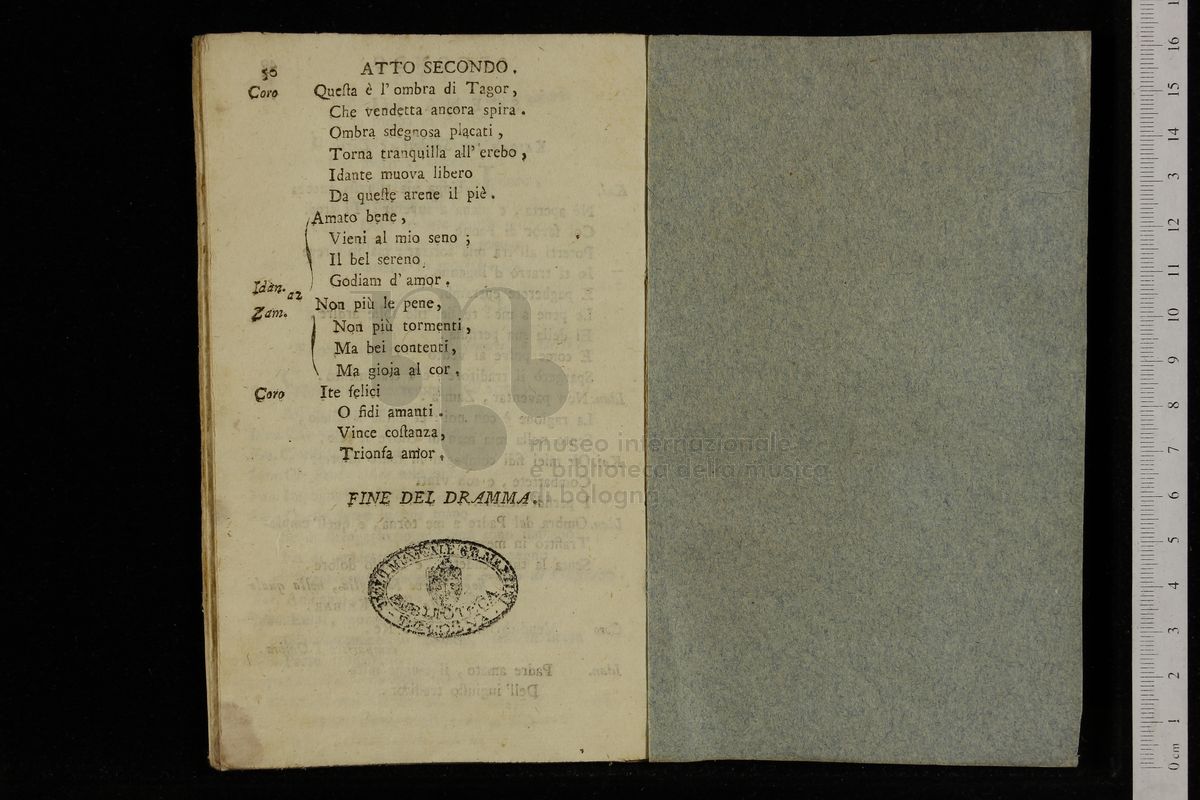 50 ATTO SECONDO.
Coro Queſta è l' ombra di Tagor,
Che vendetta ancora spira.
Ombra sdegnosa plącati,
Torna tranquilla all' erebo,
Idante muova libero
Da queſte arene il piè.
Amato bene,
Vieni al mio seno;
Il bel sereno
Godiam d' amor.
Idan. a2
Zam.
Non più le pene,
Non più tormenti,
Ma bei contenti,
Ma gioja al cor.
Coro Ite felici
O fidi amanti.
Vince coſtanza,
Trionfa amor.
FINE DEL DRAMMA.
LICEO MUSICALE
BIBLIOTECA
BOLOGNA
museo internazionale
e biblioteca della musica
di bologna
16
15
14
13
12
11
10
9
8
7
6
5
4
3
2
1
0 cm